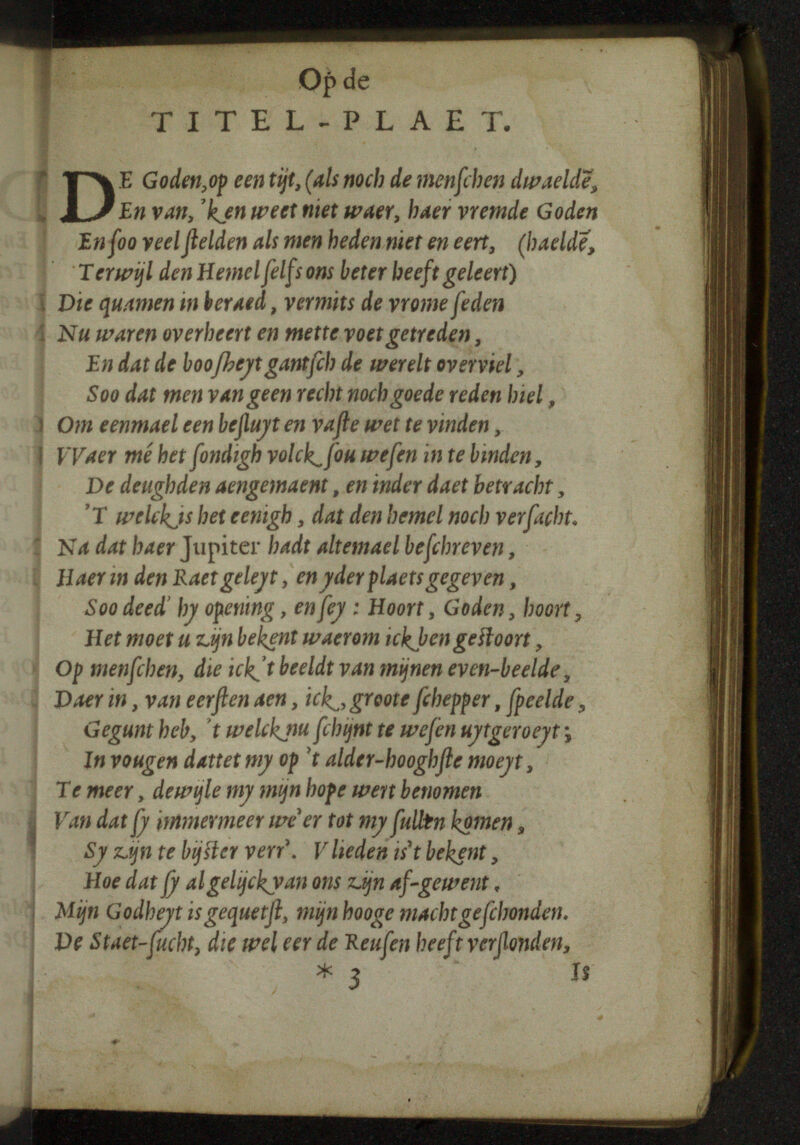 Op de
TITEL-PLAET.
DE Goden, op een tijt, (als noch de menſchen dwaeldẽ,
En van, 'k en weet niet waer, haer vremde Goden
En ſoo veel ſtelden als men heden niet en eert, (haeldẽ,
Terwijl den Hemel ſelfs ons beter heeft geleert)
Die quamen in beraed, vermits de vrome ſeden
Nu waren overheert en mette voet getreden,
En dat de booſheyt gantſch de werelt overviel,
Soo dat men van geen recht noch goede reden hiel,
Om eenmael een beſluyt en vaſte wet te vinden,
VVaer mé het ſondigh volck ſou weſen in te binden,
De deughden aengemaent, en inder daet betracht,
'T welck is het eenigh, dat den hemel noch verſacht.
Na dat haer Jupiter hadt altemael beſchreven,
Haer in den Raet geleyt, en yder plaets gegeven,
Soo deed' hy opening, en ſey : Hoort, Goden, hoort,
Het moet u zijn bekent waerom ick ben geſtoort,
Op menſchen, die ick 't beeldt van mijnen even-beelde,
Daer in, van eerſten aen, ick, groote ſchepper, ſpeelde,
Gegunt heb, 't welck nu ſchijnt te weſen uytgeroeyt;
In vougen dattet my op 't alder-hooghſte moeyt,
Te meer, dewijle my mijn hope wert benomen
Van dat ſy immermeer we'er tot my ſullen komen,
Sy zijn te bijſter verr'. V lieden is't bekent,
Hoe dat ſy al gelijck van ons zijn af-gewent.
Mijn Godheyt is gequetſt, mijn hooge macht geſchonden.
De Staet-ſucht, die wel eer de Reuſen heeft verſlonden,
* 3 Is